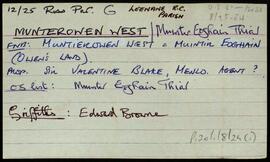 12/25 Ross Par. G
PARISH
MUNTEROWEN WEST / Muinter Eoghain Thiar
ENG: MUNTIEROWEN WEST = MUINTIR EOGHAIN
(OWEN'S LAND).
PROP. SIR VALENTINE BLAKE, MENLO. AGENT ?
OS LIST: Muinter Eoghain Thiar
Griffiths: Edward Browne
P.20/1/8/24 (i)